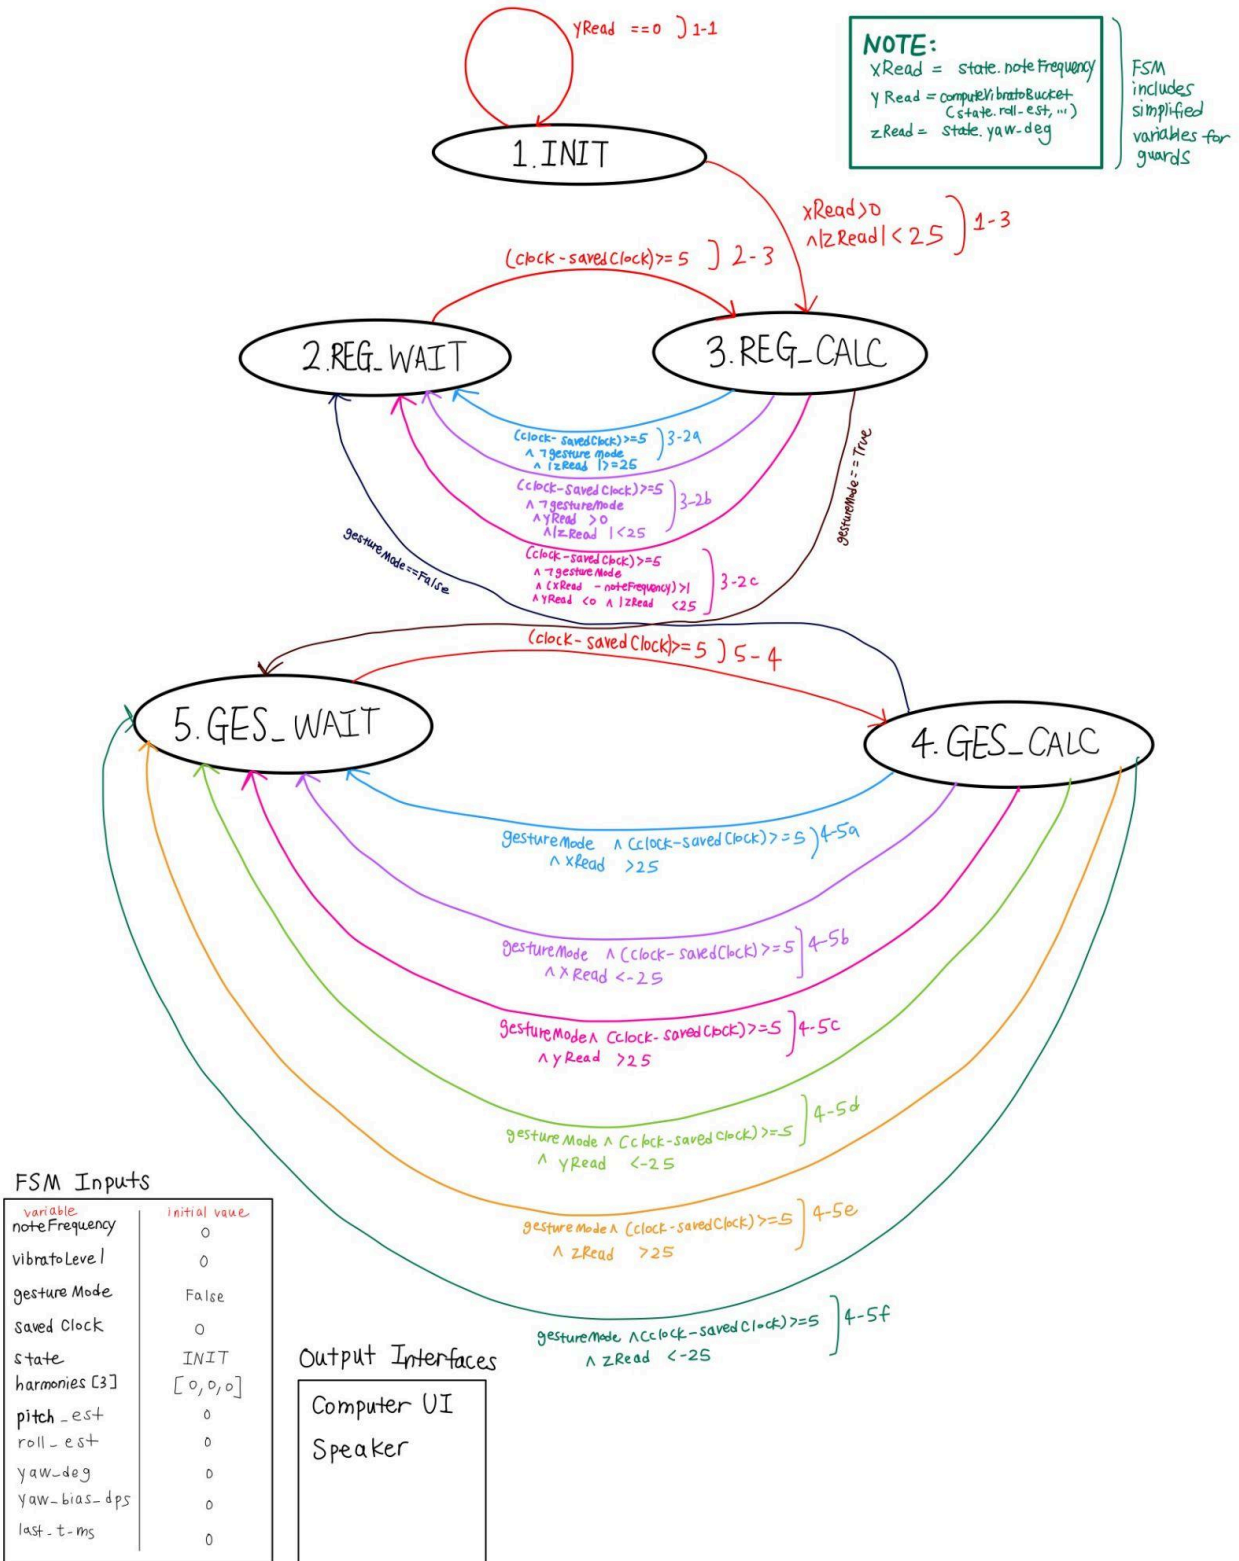 yRead ==0 ) 1-1
NOTE:
xRead = state.noteFrequency
yRead = computeVibratoBucket
(state.roll-est, ...)
zRead = state.yaw-deg
FSM
includes
simplified
variables for
guards
1.INIT
xRead>0
∧|zRead|<25 ) 1-3
(clock-savedClock)>=5 ] 2-3
2.REG_WAIT
3.REG_CALC
(clock-savedClock)>=5 ) 3-2a
∧ ¬gesture mode
∧ |zRead |>=25
(clock-savedClock)>=5
∧ ¬gestureMode
∧ yRead >0
∧|zRead |<25 ) 3-2b
(clock-savedClock)>=5
∧ ¬gestureMode
∧ (xRead - noteFrequency)>1
∧ yRead <0 ∧ |zRead <25 ) 3-2c
gestureMode==True
gestureMode==False
(clock-savedClock)>=5 ) 5-4
5.GES_WAIT
4.GES_CALC
gestureMode ∧ (clock-savedClock)>=5 ) 4-5a
∧ xRead >25
gestureMode ∧ (clock-savedClock)>=5 ] 4-5b
∧ xRead <-25
gestureMode∧ (clock-savedClock)>=5 ] 4-5c
∧ yRead >25
gestureMode ∧ (clock-savedClock)>=5 ] 4-5d
∧ yRead <-25
gesturemode∧ (clock-savedClock)>=5 ] 4-5e
∧ zRead >25
gestureMode ∧(clock-savedClock)>=5 ] 4-5f
∧ zRead <-25
FSM Inputs
variable initial vaue
noteFrequency 0
vibratoLevel 0
gesture Mode False
saved Clock 0
state INIT
harmonies [3] [0,0,0]
pitch_est 0
roll_est 0
yaw_deg 0
yaw_bias_dps 0
last_t-ms 0
Output Interfaces
Computer UI
Speaker